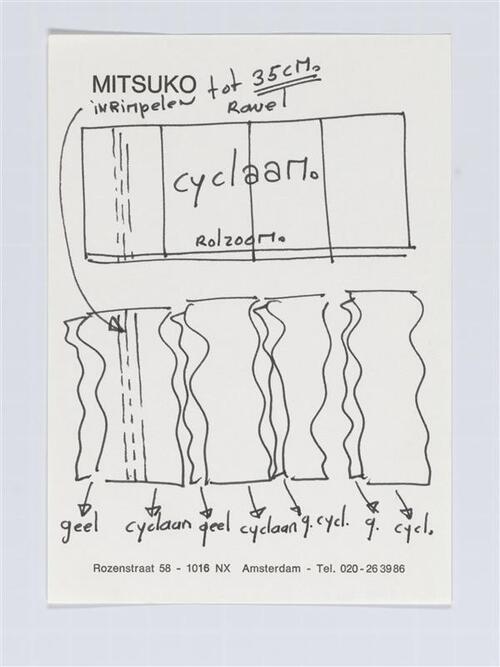 MITSUKO tot 35cm.
inrimpelen Ravel
cyclaam.
Rolzoom.
geel cyclaan geel cyclaan g. cycl. g. cycl.
Rozenstraat 58 - 1016 NX Amsterdam - Tel. 020-263986